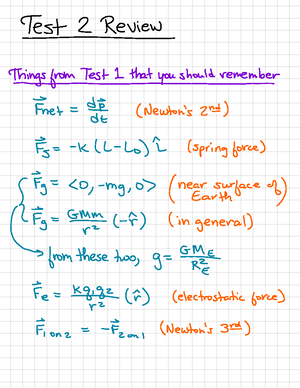 Test 2 Review
Things from Test 1 that you should remember
F⃗net = dp⃗/dt (Newton's 2nd)
F⃗s = -k (L-L₀) L̂ (spring force)
F⃗g = <0, -mg, 0> (near surface of Earth)
F⃗g = GMm/r² (-r̂) (in general)
from these two, g = GM_E/R_E²
F⃗e = kq₁q₂/r² (r̂) (electrostatic force)
F⃗1 on 2 = -F⃗2 on 1 (Newton's 3rd)